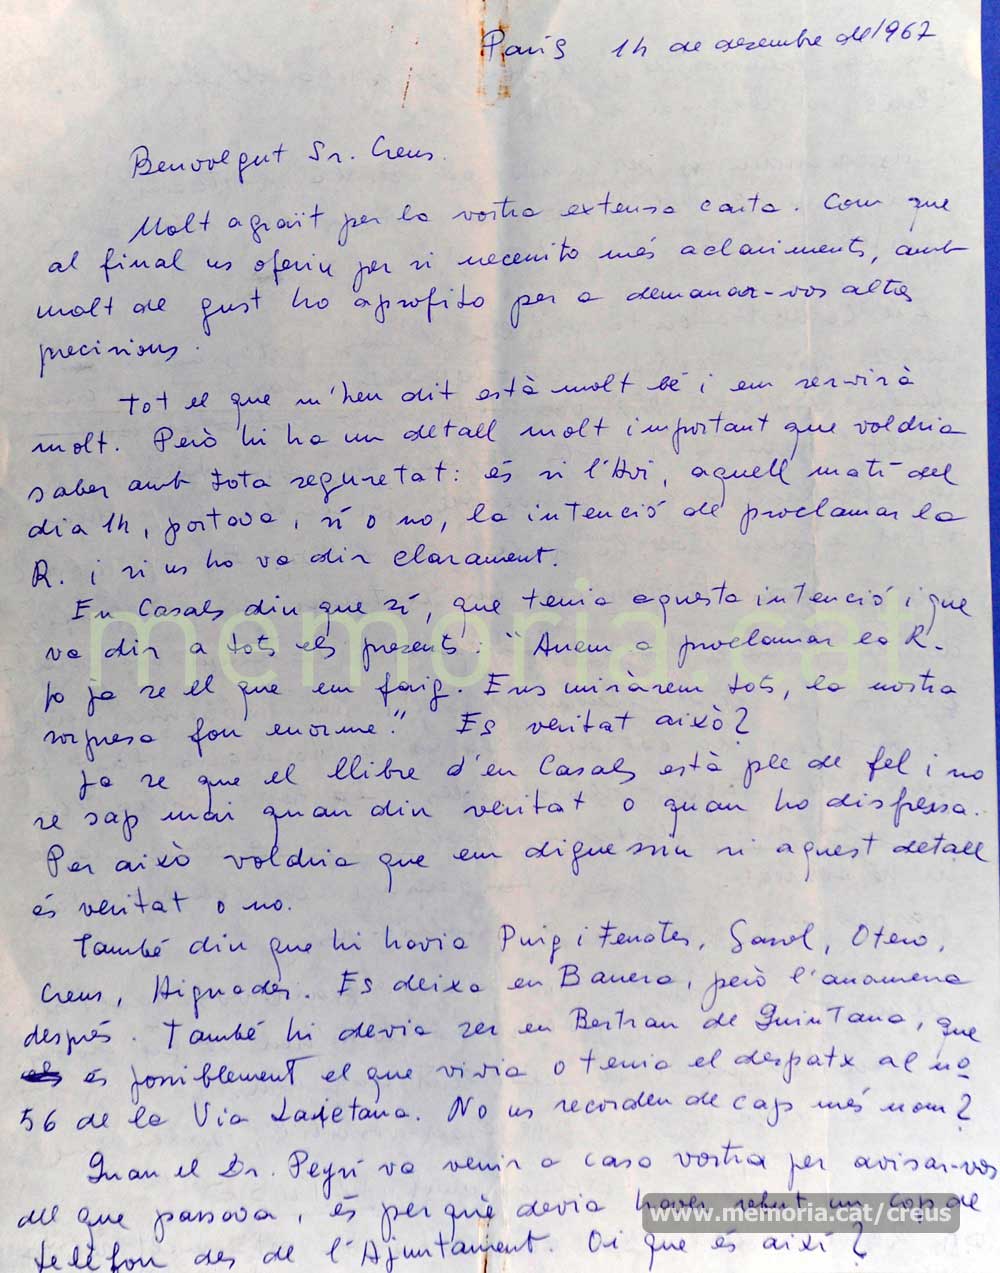 Paris 14 de desembre de 1967
Benvolgut Sr. Creus.
Molt agraït per la vostra extensa carta. Com que
al final us oferiu per si necessito més aclariments, amb
molt de gust ho aprofito per a demanar-vos altres
precisions.
Tot el que m'heu dit està molt bé i em servirà
molt. Però hi ha un detall molt important que voldria
saber amb tota seguretat: és si l'Avi, aquell matí del
dia 14, portava, sí o no, la intenció de proclamar la
R. i si us ho va dir clarament.
En Casals diu que sí, que tenia aquesta intenció i que
va dir a tots els presents: "Anem a proclamar la R.
Jo ja se el que em faig. Ens miràrem tots, la nostra
sorpresa fou enorme." Es veritat això?
Ja se que el llibre d'en Casals està ple de fel i no
se sap mai quan diu veritat o quan ho disfressa.
Per això voldria que em diguessiu si aquest detall
és veritat o no.
També diu que hi havia Puig i Ferrater, Gassol, Otero,
Creus, Aiguader. Es deixa en Banera, però l'anomena
després. També hi devia ser en Bertran de Quintana, que
és possiblement el que vivia o tenia el despatx al nº
56 de la Via Laietana. No us recorden de cap més nom?
Quan el Dr. Peyrí va venir a casa vostra per avisar-vos
del que passava, és perquè devia haver rebut un cop de
telèfon des de l'Ajuntament. Oi que és així?
memoria.cat
www.memoria.cat/creus